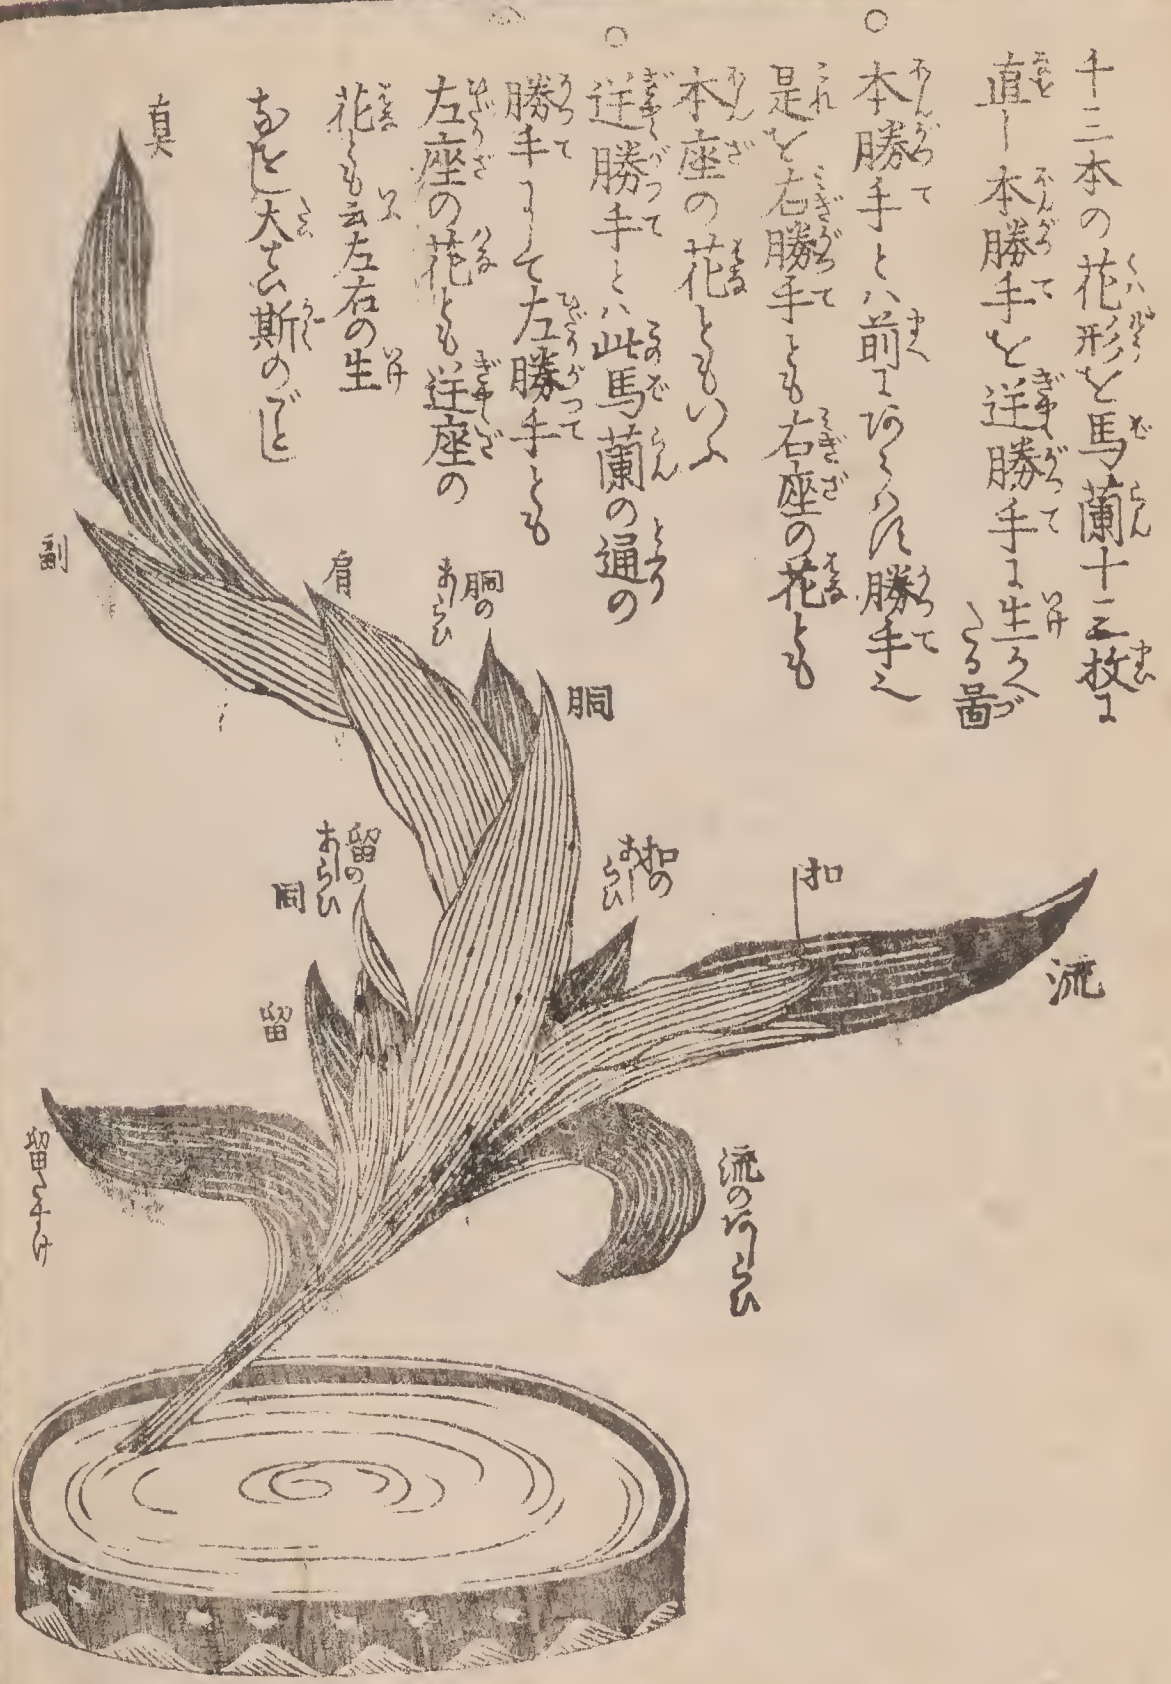 十三本の花形を馬蘭十三枚に
直し本勝手を逆勝手に生かへ
たる圖
○本勝手とハ前にあらハす勝手也
是を右勝手とも右座の花とも
本座の花ともいふ
○逆勝手とハ此馬蘭の通の
勝手にして左勝手とも
左座の花とも逆座の
花とも云左右の生
大き斯のごとし
真
副
肩
胴のあしらひ
胴
留のあしらひ
同
扣のあしらひ
扣
流
留
留
流のあしらひ